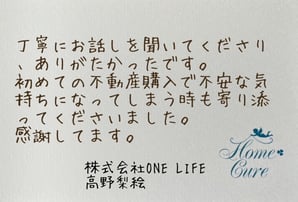 丁寧にお話しを聞いてくださり
、ありがたかったです。
初めての不動産購入で不安な気
持ちになってしまう時も寄り添
ってくださいました。
感謝してます。
株式会社ONE LIFE
高野梨絵
Home
Cure